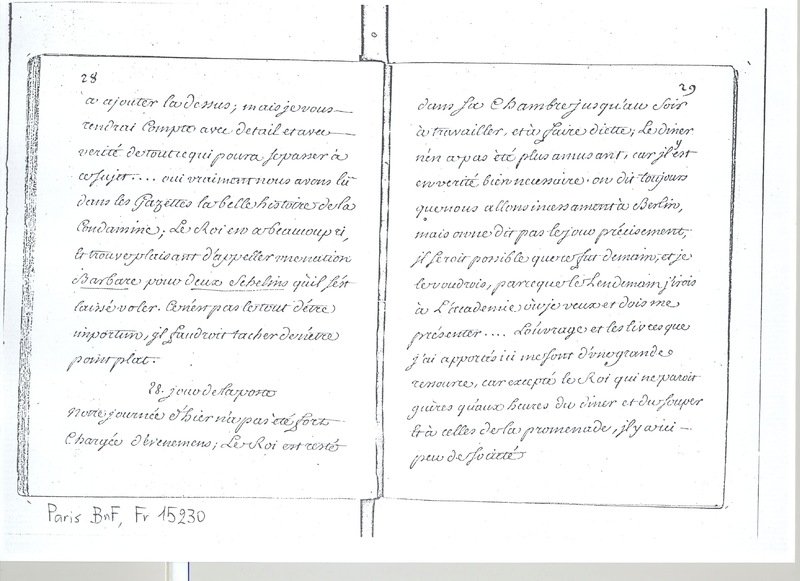 28
a ajouter la dessus; mais je vous
rendrai Compte avec detail et avec
verité de tout ce qui poura se passer à
ce sujet.... oui vraiment nous avons lû
dans les Gazettes la belle histoire de la
Condamine; Le Roi en a beaucoup ri,
et trouve plaisant d'appeller une nation
Barbare pour deux Schelins qu'il s'est
laissé voler. Ce n'est pas le tout d'être
importun, il faudroit tacher de n'etre
point plat.
28. jour de la poste
Notre journée d'hier n'a pas été fort
Chargée d'évenemens; Le Roi est resté
29
dans sa Chambre jusqu'au Soir
à travailler, et à faire diette; Le diner
n'en a pas été plus amusant, car il y est
en verité bien necessaire. on dit toujours
que nous allons incessament à Berlin,
mais on ne dit pas le jour précisement;
il seroit possible que ce fut demain, et je
le voudrois, parce que le Lendemain j'irois
à L'Accademie où je veux et dois me
présenter.... L'ouvrage et les livres que
j'ai apportés ici me sont d'une grande
ressource, car excepté le Roi qui ne paroit
guères qu'aux heures du diner et du souper
et à celles de la promenade, il y a ici
peu de societés
Paris BnF, Fr 15230